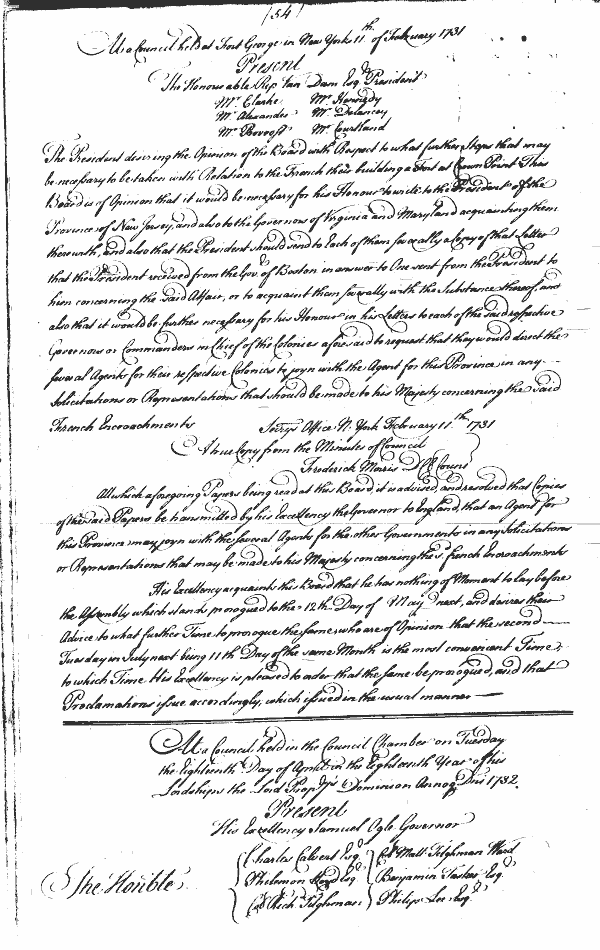 (54)
At a Council held at Fort George in New York 11th of February 1731
Present
The Honourable Rip Van Dam Esqr President
Mr Clarke Mr Kennedy
Mr Alexander Mr Delancey
Mr Provoost Mr Courtland
The President desiring the Opinion of the Board with Respect to what further Steps that may
be necessary to be taken with Relation to the French their building a Fort at Crown Point This
Board is of Opinion that it would be necessary for his Honour to write to the President of the
Province of New Jersey, and also to the Governors of Virginia and Maryland acquainting them
therewith, and also that the President should send to each of them severally a Copy of that Letter
that the President received from the Govr of Boston in answer to One sent from the President to
him concerning the said Affair, or to acquaint them severally with the Substance thereof, and
also that it would be further necessary for his Honour in his Letters to each of the said respective
Governors or Commanders in Chief of the Colonies aforesaid to request that they would direct the
several Agents for their respective Colonies to joyn with the Agent for this Province in any
Solicitations or Representations that should be made to his Majesty concerning the said
French Encroachments Secrys Office N. York February 11th 1731
A true Copy from the Minutes of Council
Frederick Morris D Cl Coun
All which aforegoing Papers being read at this Board it is advised and resolved that Copies
of the said Papers be transmitted by his Excellency the Governor to England, that an Agent for
this Province may joyn with the several Agents for the other Governments in any Solicitations
or Representations that may be made to his Majesty concerning the French Encroachments
His Excellency acquaints this Board that he has nothing of Moment to lay before
the Assembly which stands prorogued to the 12th Day of May next, and desires their
Advice to what further Time to prorogue the same who are of Opinion that the second
Tuesday in July next being 11th Day of the same Month is the most convenient Time,
to which Time His Excellency is pleased to order that the same be prorogued, and that
Proclamations issue accordingly, which issued in the usual manner
At a Council held in the Council Chamber on Tuesday
the Eighteenth Day of April in the Eighteenth Year of his
Lordships the Lord Proprys Dominion Annoq Dni 1732.
Present
His Excellency Samuel Ogle Governor
Charles Calvert Esqr Col Matt Tilghman Ward
The Honble Philemon Lloyd Esqr Benjamin Tasker Esqr
Col Rich Tilghman Philip Lee Esqr